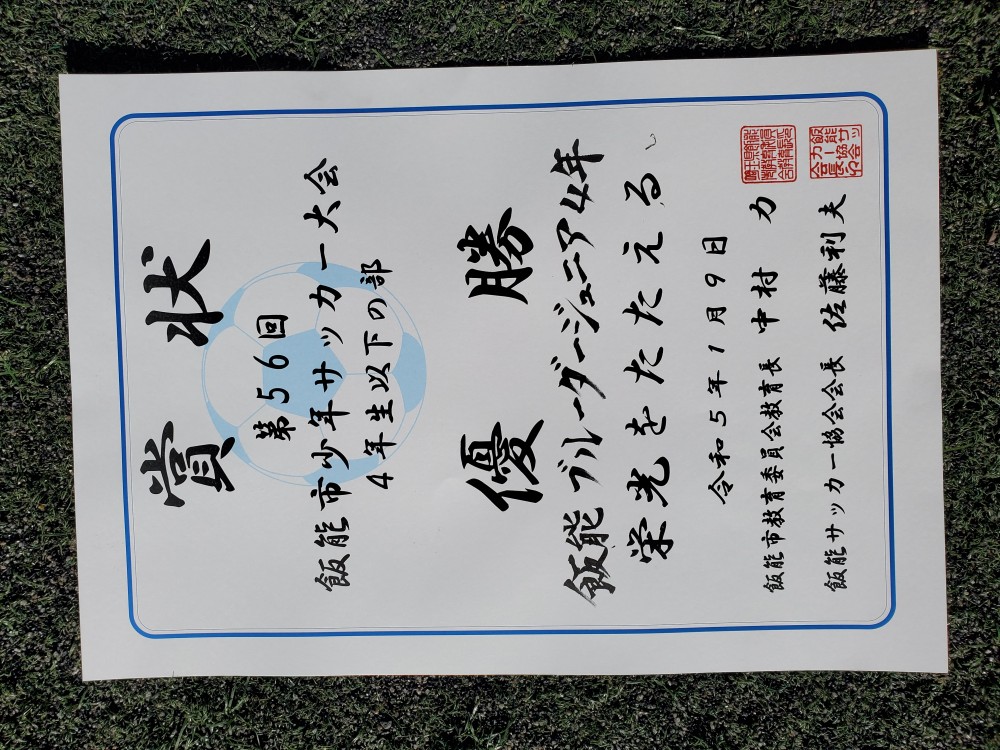 賞状
第56回
飯能市少年サッカー大会
4年生以下の部
優勝
飯能ブルーダージュニア4年
栄光をたたえる、
令和5年1月9日
飯能市教育委員会教育長 中村 力
飯能サッカー協会会長 佐藤利夫